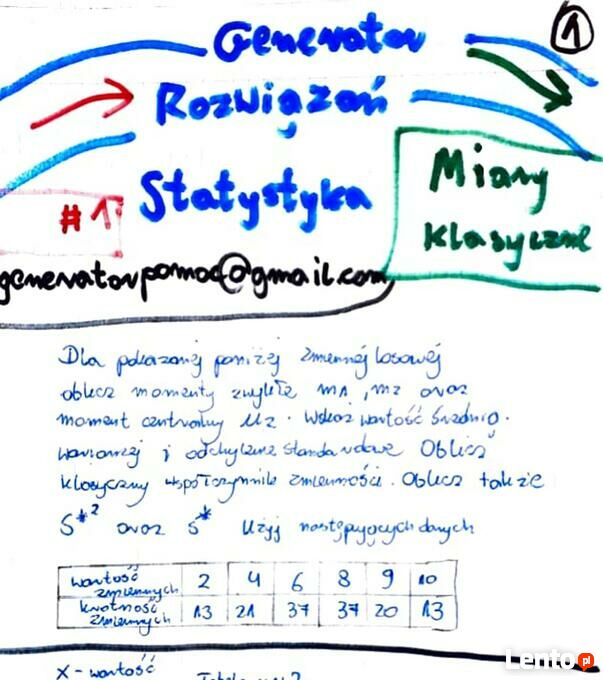 Generator
1
Rozwiązań
Statystyka
#1
Miary
klasyczne
generatorpomoc@gmail.com
Dla pokazanej poniżej zmiennej losowej
oblicz momenty zwykłe m1, m2 oraz
moment centralny μ2. Wskaż wartość średnią,
wariancję i odchylenie standardowe Oblicz
klasyczny współczynnik zmienności. Oblicz także
S*² oraz S* Użyj następujących danych
wartość zmiennych 2 4 6 8 9 10
krotność zmiennych 13 21 37 37 20 13
x - wartość
Lento.pl